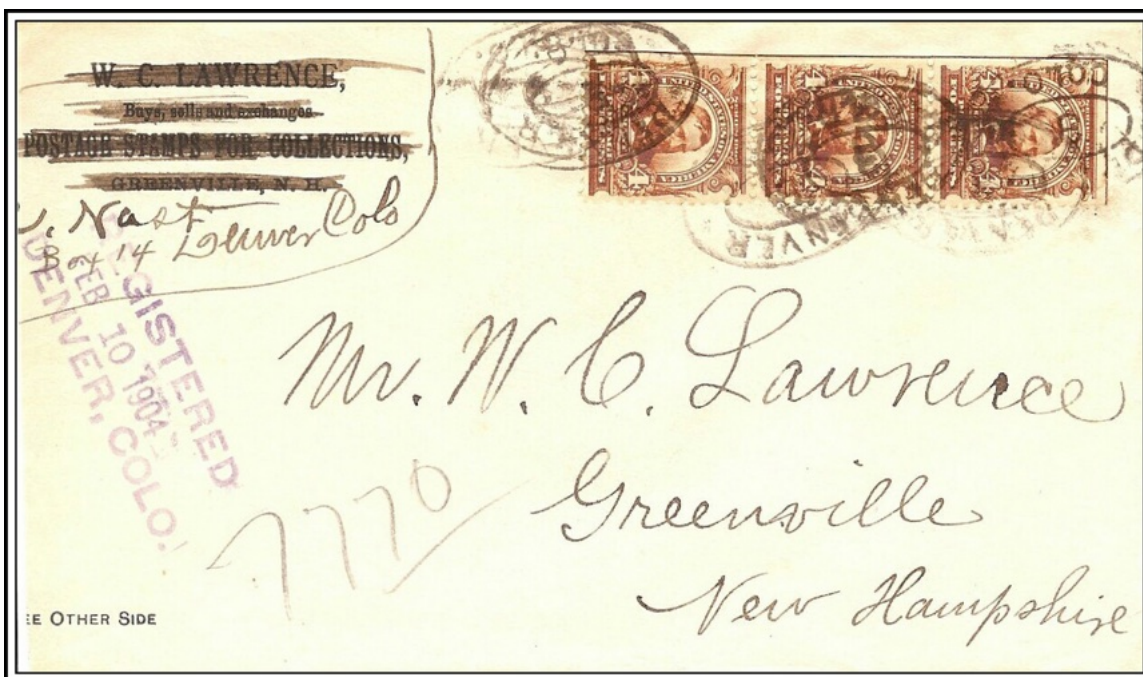 W. C. LAWRENCE,
Buys, sells and exchanges
POSTAGE STAMPS FOR COLLECTIONS,
GREENVILLE, N. H.
Nast
Box 14 Denver Colo
REGISTERED
FEB 10 1904
DENVER, COLO.
DENVER
Mr. W. C. Lawrence
Greenville
New Hampshire
7770
EE OTHER SIDE